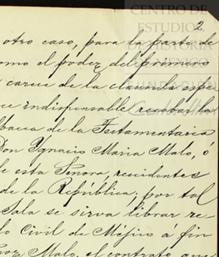 CENTRO DE
ESTUDIOS
2
otro caso, para la parte de
como el poder del primero
carece de la clausula espe
ce indispensable recabar la
bacea de la Testamentaria
Don Ignacio Maria Malo, ó
de esta Señora, residentes
de la República; por tal
Sala se sirva librar re
lo Civil de Méjico á fin
Malo, el contrato que